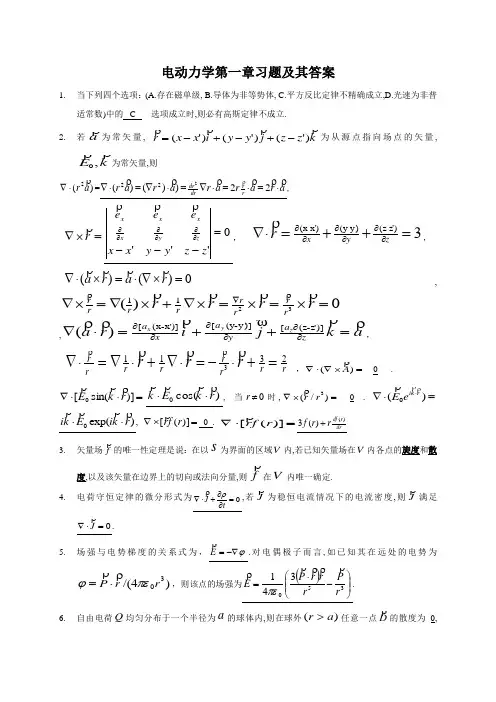 电动力学第一章习题及其答案
1. 当下列四个选项：(A.存在磁单级, B.导体为非等势体, C.平方反比定律不精确成立,D.光速为非普
适常数)中的 C 选项成立时,则必有高斯定律不成立.
2. 若 a 为常矢量, r = (x − x')i + (y − y')j + (z − z')k 为从源点指向场点的矢量,
E₀,k 为常矢量,则
∇·(r²a)=∇·(r²a)=(∇r²)·a)= dr²/dr ∇r·a=2r r/r·a=2r·a,
∇×r = | eₓ eₓ eₓ ; ∂/∂x ∂/∂y ∂/∂z ; x−x' y−y' z−z' | = 0 , ∇·r = ∂(x-x')/∂x + ∂(y-y')/∂y + ∂(z-z')/∂z = 3 ,
∇·(a×r) = a·(∇×r) = 0 ,
∇× r/r = ∇(1/r)×r + 1/r ∇×r = ∇r/r² ×r = r/r³ ×r = 0
,∇(a·r) = ∂[aₓ(x-x')]/∂x i + ∂[a_y(y-y')]/∂y j + [a_z∂(z-z')]/∂z k = a ,
∇· r/r = ∇1/r ·r + 1/r ∇·r = − r/r³ ·r + 3/r = 2/r , ∇·(∇×A) = 0 .
∇·[E₀ sin(k·r)] = k·E₀ cos(k·r) , 当 r≠0 时,∇×(r/r³) = 0 . ∇·(E₀e^{ik·r}) =
ik·E₀ exp(ik·r) , ∇×[rf(r)] = 0 . ∇·[rf(r)] = 3f(r) + r df(r)/dr
3. 矢量场 f 的唯一性定理是说：在以 s 为界面的区域V 内,若已知矢量场在V 内各点的旋度和散
度,以及该矢量在边界上的切向或法向分量,则 f 在V 内唯一确定.
4. 电荷守恒定律的微分形式为 ∇·J + ∂ρ/∂t = 0 ,若 J 为稳恒电流情况下的电流密度,则 J 满足
∇·J = 0 .
5. 场强与电势梯度的关系式为, E = −∇φ .对电偶极子而言,如已知其在远处的电势为
φ = P·r/(4πε₀r³) ，则该点的场强为 E = 1/(4πε₀) ( 3(P·r)r/r⁵ − P/r³ ) .
6. 自由电荷Q 均匀分布于一个半径为a 的球体内,则在球外(r > a) 任意一点D 的散度为 0,